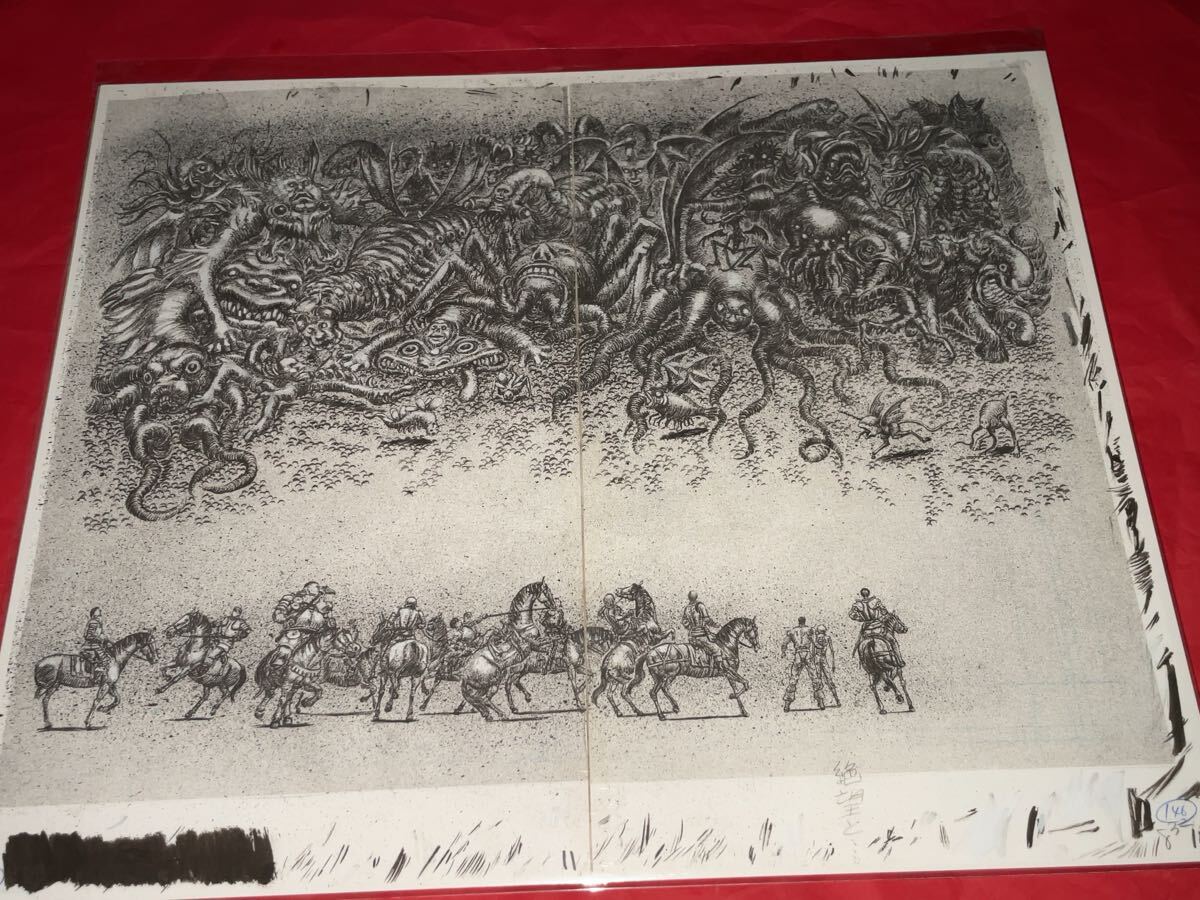 絶望と
146